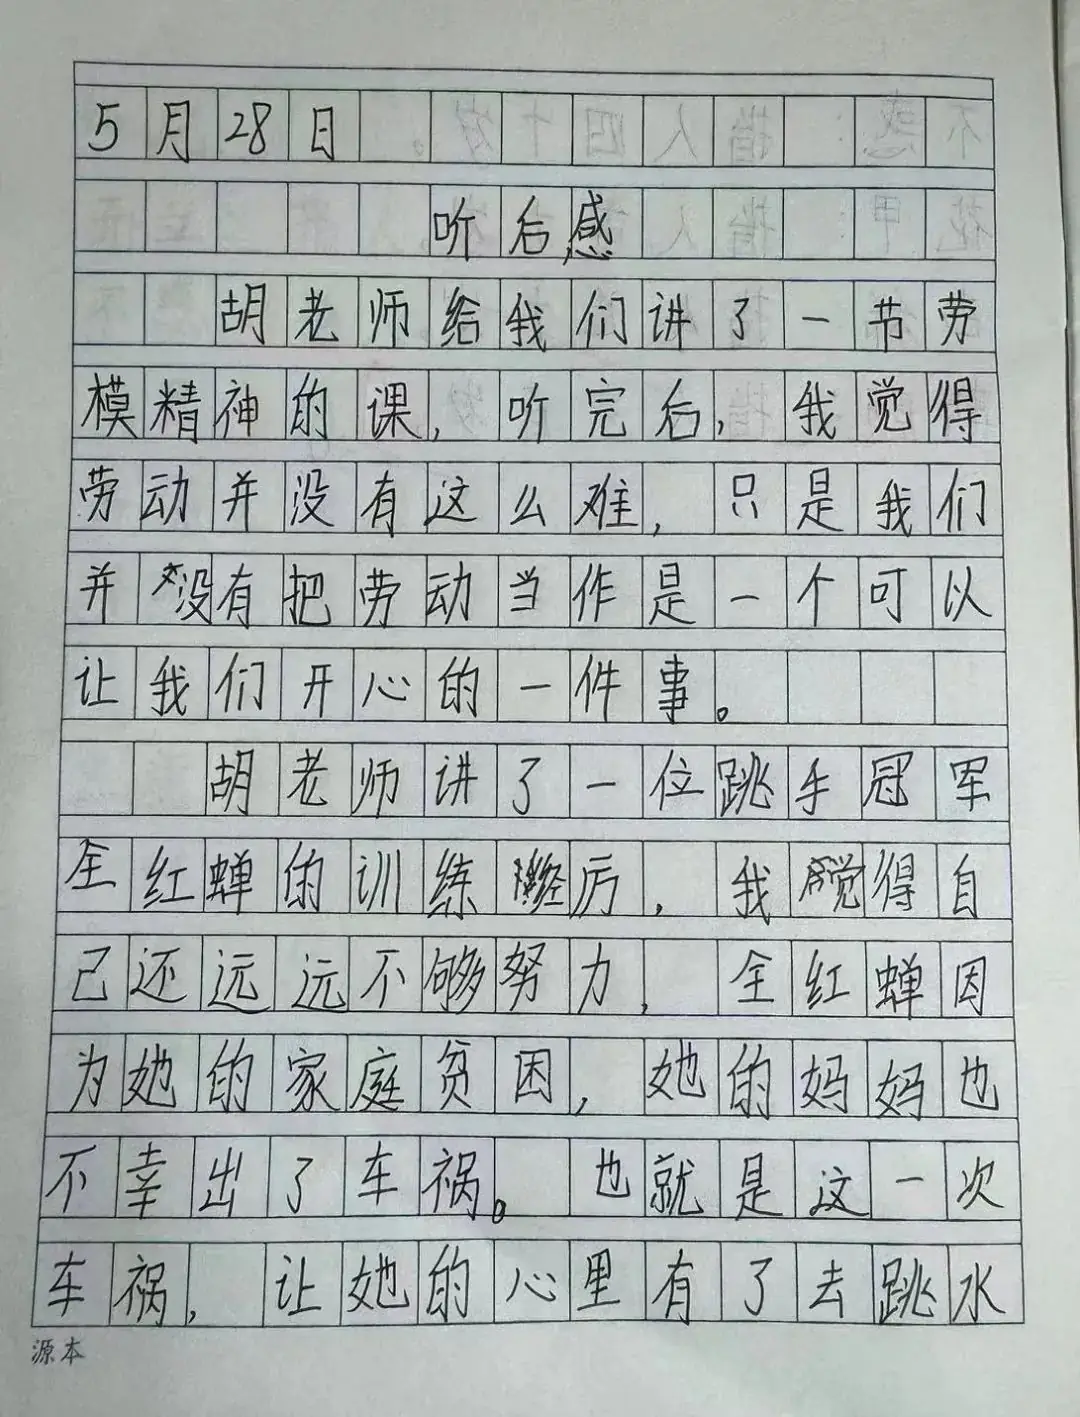 5月28日
听后感
胡老师给我们讲了一节劳
模精神的课，听完后，我觉得
劳动并没有这么难，只是我们
并没有把劳动当作是一个可以
让我们开心的一件事。
胡老师讲了一位跳手冠军
全红蝉的训练经历，我觉得自
己还远远不够努力，全红蝉因
为她的家庭贫困，她的妈妈也
不幸出了车祸。也就是这一次
车祸，让她的心里有了去跳水
源本